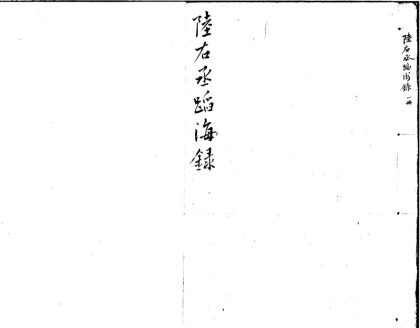 陸右丞蹈海錄一冊
陸右丞蹈海録